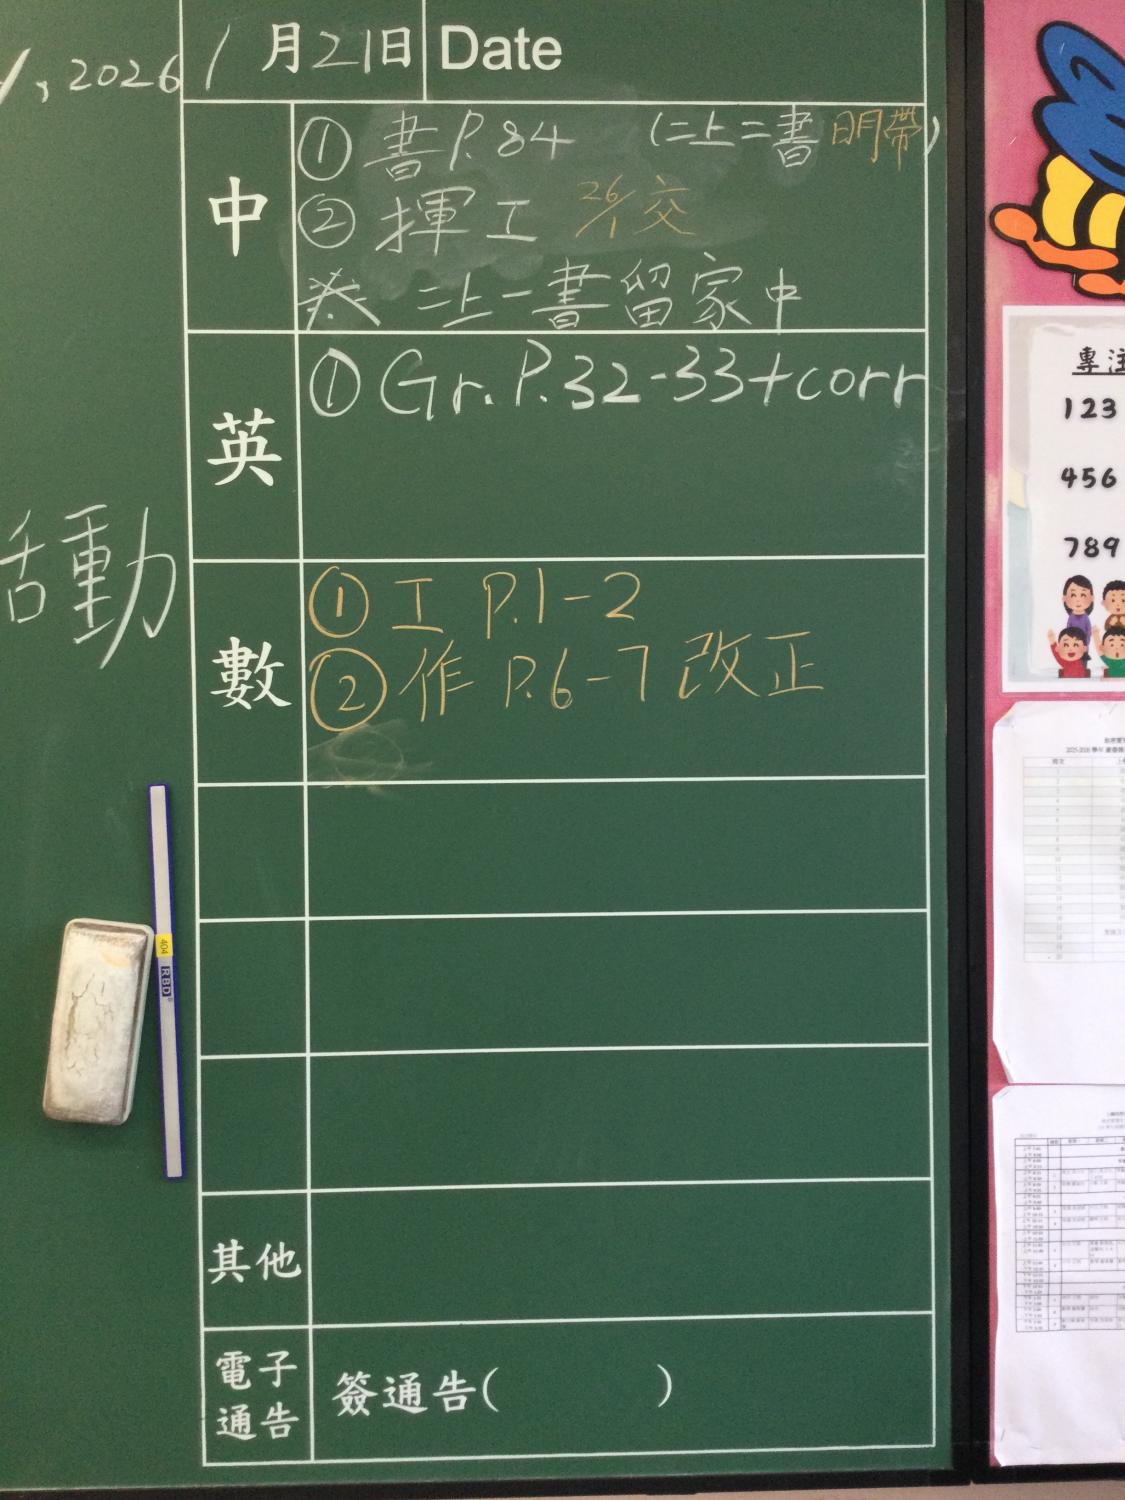 , 2026
1月21日 Date
中
① 書P.84 (二上二書明帶)
② 揮工 26/1交
二上一書留家中
英
① Gr.P.32-33+corr
活動
數
① 工 P.1-2
② 作 P.6-7 改正
404 RBD
其他
電子通告
簽通告( )
專注
123
456
789